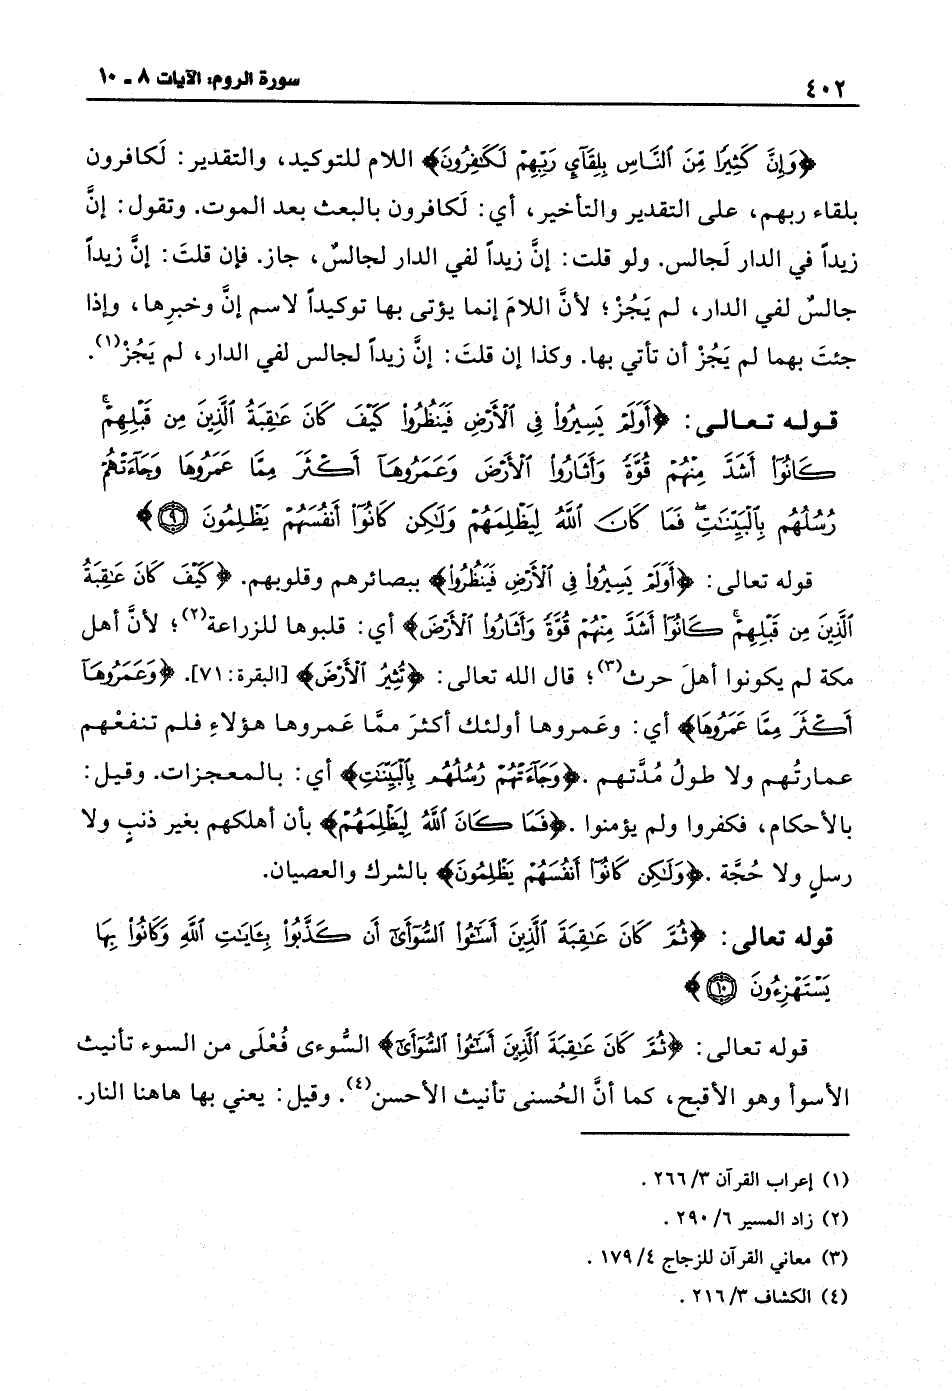 ٤٠٢
سورة الروم: الآيات ٨ - ١٠
﴿وَإِنَّ كَثِيرًا مِّنَ ٱلنَّاسِ بِلِقَآيِٕ رَبِّهِمْ لَكَٰفِرُونَ﴾ اللام للتوكيد، والتقدير: لَكافرون
بلقاء ربهم، على التقدير والتأخير، أي: لَكافرون بالبعث بعد الموت. وتقول: إنَّ
زيداً في الدار لَجالس. ولو قلت: إنَّ زيداً لفي الدار لجالسٌ، جاز. فإن قلتَ: إنَّ زيداً
جالسٌ لفي الدار، لم يَجُزْ؛ لأنَّ اللامَ إنما يؤتى بها توكيداً لاسم إنَّ وخبرِها، وإذا
جئتَ بهما لم يَجُزْ أن تأتي بها. وكذا إن قلتَ: إنَّ زيداً لجالس لفي الدار، لم يَجُزْ(١).
قوله تعالى: ﴿أَوَلَمْ يَسِيرُوا۟ فِى ٱلْأَرْضِ فَيَنظُرُوا۟ كَيْفَ كَانَ عَٰقِبَةُ ٱلَّذِينَ مِن قَبْلِهِمْ ۚ
كَانُوٓا۟ أَشَدَّ مِنْهُمْ قُوَّةً وَأَثَارُوا۟ ٱلْأَرْضَ وَعَمَرُوهَآ أَكْثَرَ مِمَّا عَمَرُوهَا وَجَآءَتْهُمْ
رُسُلُهُم بِٱلْبَيِّنَٰتِ ۖ فَمَا كَانَ ٱللَّهُ لِيَظْلِمَهُمْ وَلَٰكِن كَانُوٓا۟ أَنفُسَهُمْ يَظْلِمُونَ ۝٩﴾
قوله تعالى: ﴿أَوَلَمْ يَسِيرُوا۟ فِى ٱلْأَرْضِ فَيَنظُرُوا۟﴾ ببصائرهم وقلوبهم. ﴿كَيْفَ كَانَ عَٰقِبَةُ
ٱلَّذِينَ مِن قَبْلِهِمْ ۚ كَانُوٓا۟ أَشَدَّ مِنْهُمْ قُوَّةً وَأَثَارُوا۟ ٱلْأَرْضَ﴾ أي: قلبوها للزراعة(٢)؛ لأنَّ أهل
مكة لم يكونوا أهلَ حرث(٣)؛ قال الله تعالى: ﴿تُثِيرُ ٱلْأَرْضَ﴾ [البقرة: ٧١]. ﴿وَعَمَرُوهَآ
أَكْثَرَ مِمَّا عَمَرُوهَا﴾ أي: وعَمروها أولئك أكثرَ ممَّا عَمروها هؤلاءِ فلم تنفعْهم
عمارتُهم ولا طولُ مُدَّتهم. ﴿وَجَآءَتْهُمْ رُسُلُهُم بِٱلْبَيِّنَٰتِ﴾ أي: بالمعجزات. وقيل:
بالأحكام، فكفروا ولم يؤمنوا. ﴿فَمَا كَانَ ٱللَّهُ لِيَظْلِمَهُمْ﴾ بأن أهلكهم بغير ذنبٍ ولا
رسلٍ ولا حُجَّة. ﴿وَلَٰكِن كَانُوٓا۟ أَنفُسَهُمْ يَظْلِمُونَ﴾ بالشرك والعصيان.
قوله تعالى: ﴿ثُمَّ كَانَ عَٰقِبَةَ ٱلَّذِينَ أَسَٰٓـُٔوا۟ ٱلسُّوٓأَىٰٓ أَن كَذَّبُوا۟ بِـَٔايَٰتِ ٱللَّهِ وَكَانُوا۟ بِهَا
يَسْتَهْزِءُونَ ۝١٠﴾
قوله تعالى: ﴿ثُمَّ كَانَ عَٰقِبَةَ ٱلَّذِينَ أَسَٰٓـُٔوا۟ ٱلسُّوٓأَىٰٓ﴾ السُّوءى فُعْلَى من السوء تأنيث
الأسوأ وهو الأقبح، كما أنَّ الحُسنى تأنيث الأحسن(٤). وقيل: يعني بها هاهنا النار.
(١) إعراب القرآن ٣/ ٢٦٦ .
(٢) زاد المسير ٦/ ٢٩٠ .
(٣) معاني القرآن للزجاج ٤/ ١٧٩ .
(٤) الكشاف ٣/ ٢١٦ .